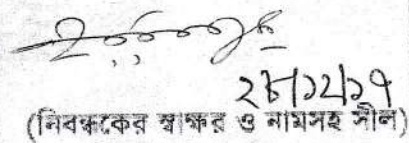 ২৮/১২/১৭
(নিবন্ধকের স্বাক্ষর ও নামসহ সীল)